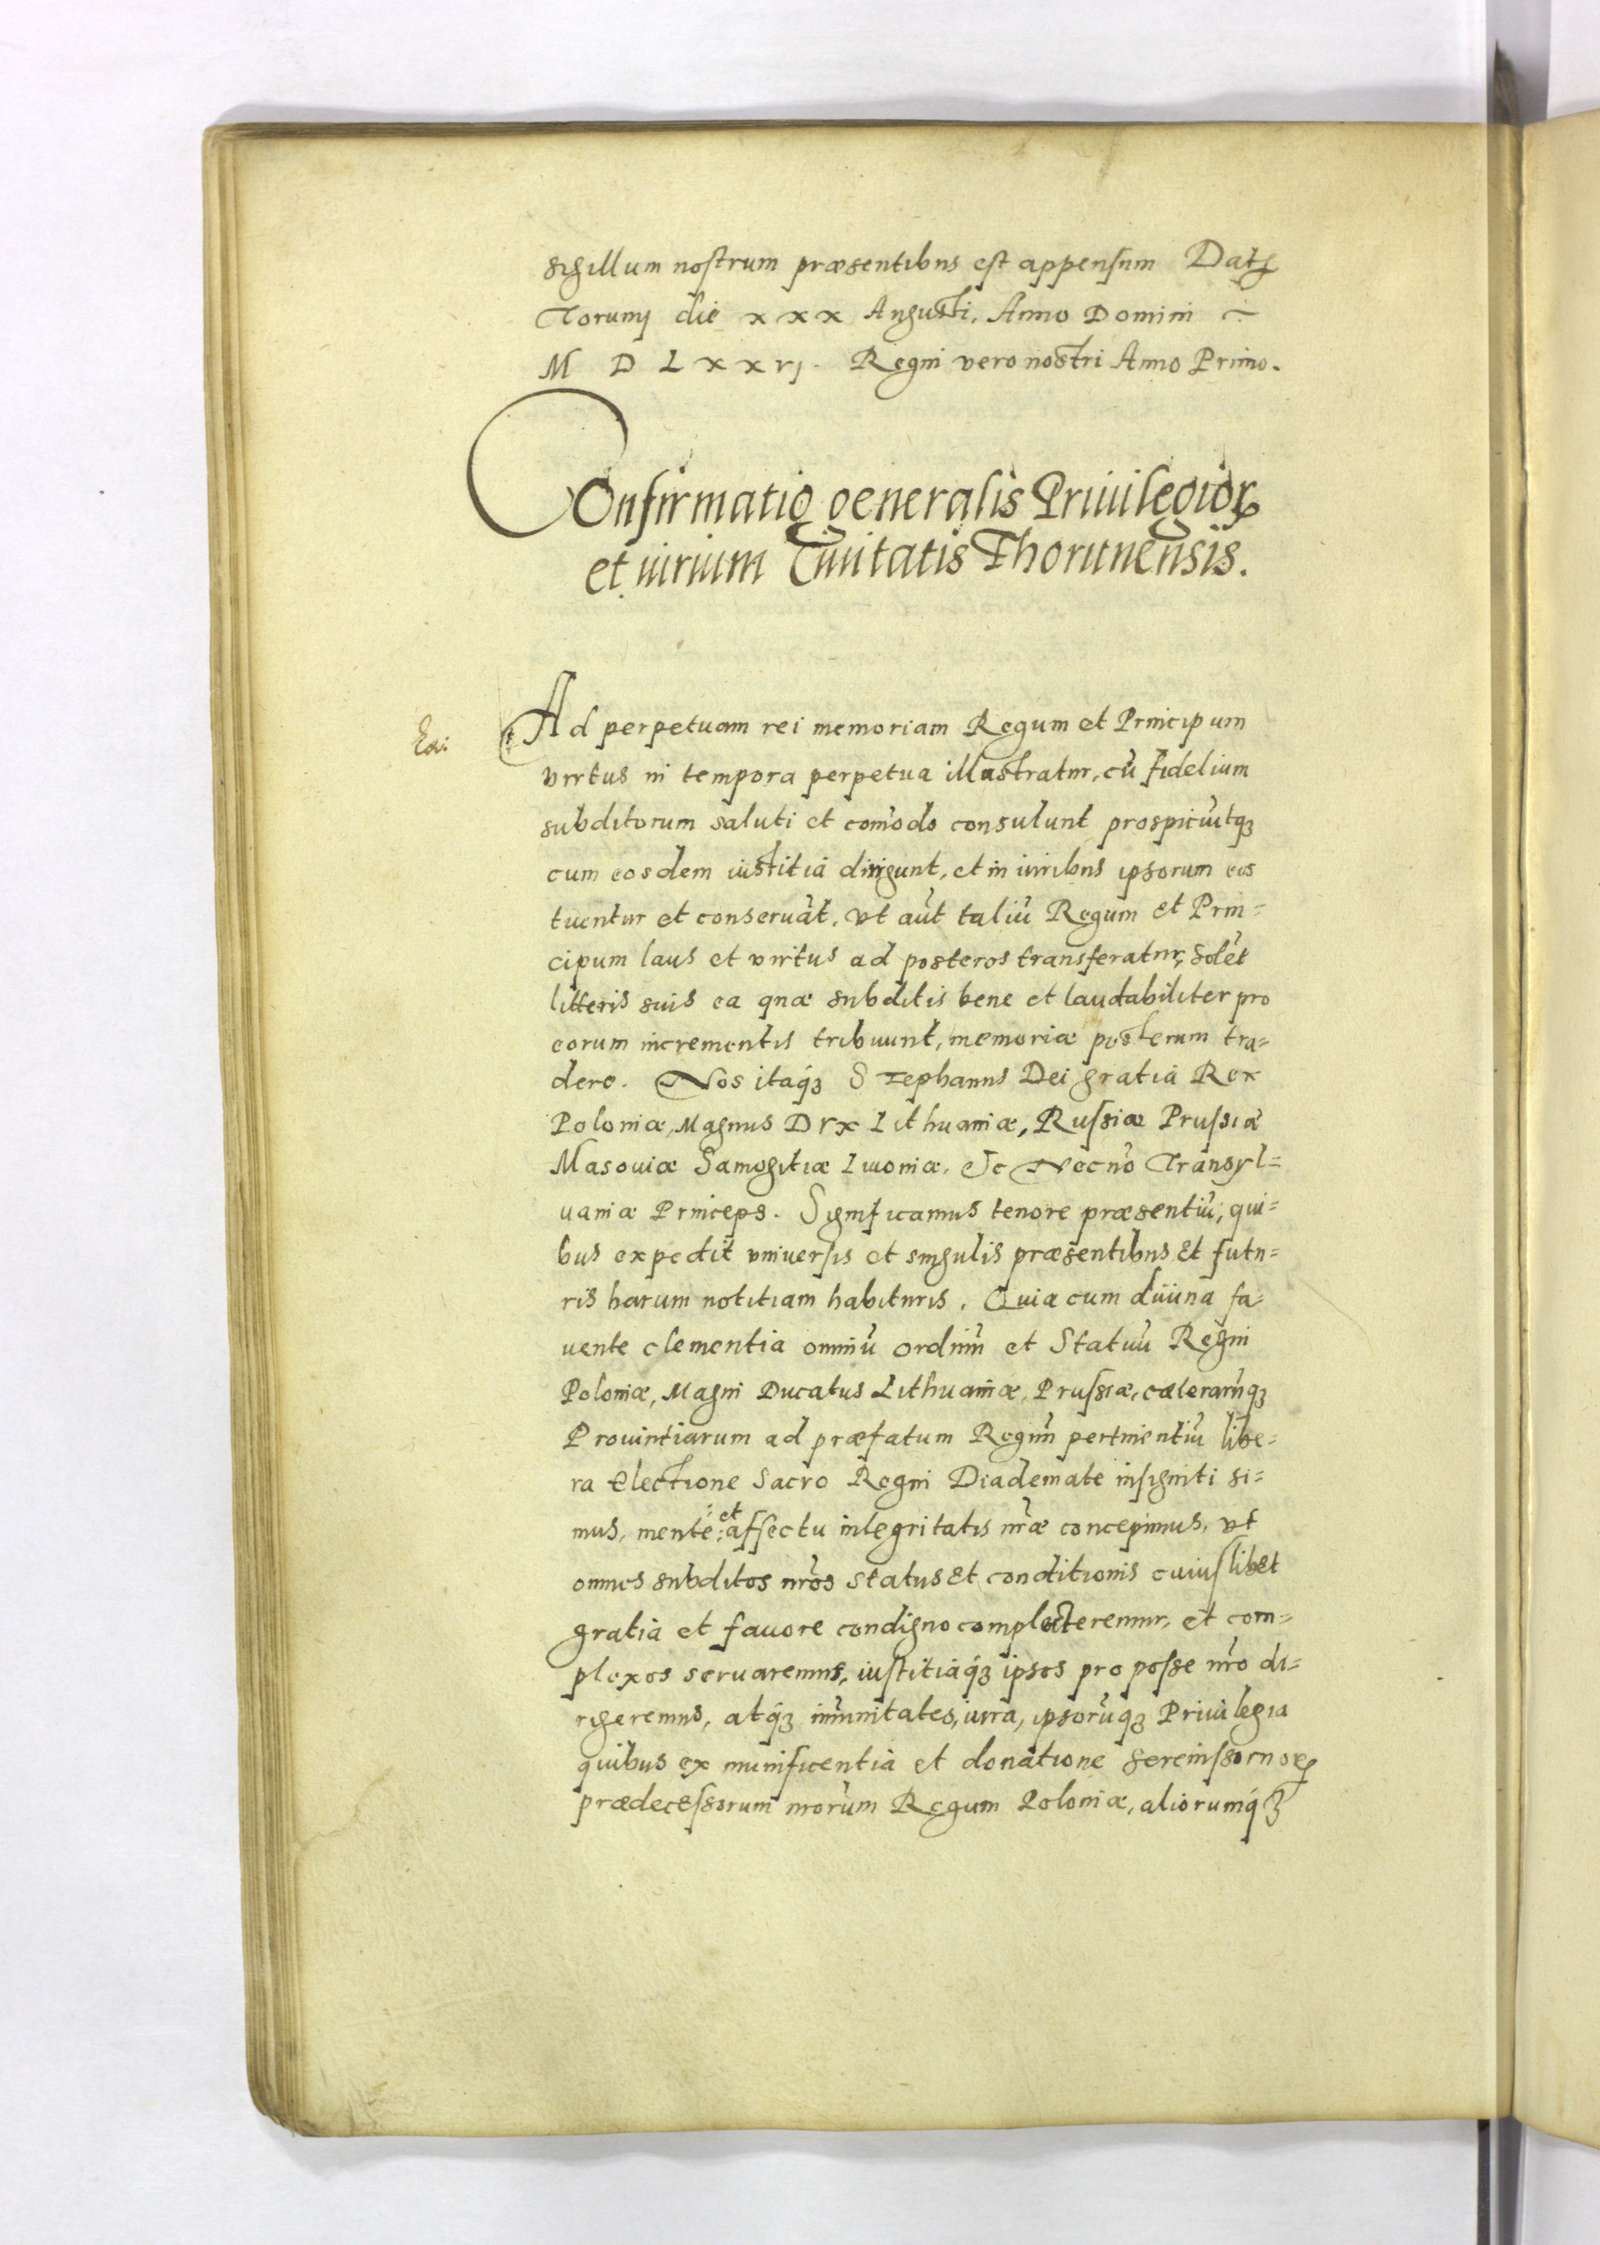 sigillum nostrum præsentibus est appensum Datꝭ
Torunij die xxx Augusti, Anno Domini
M D L x x vj. Regni vero nostri Anno Primo.
Confirmatio generalis Priuilegioꝝ
et iurium Ciuitatis Thorunensis.
Ad perpetuam rei memoriam Regum et Principum
virtus in tempora perpetua illustratur, cū fidelium
subditorum saluti et com̄odo consulunt prospiciūtqꝫ
cum eosdem iustitiâ dirigunt, et in iuribus ipsorum eos
tuentur et conseruāt, vt aūt taliū Regum et Prin=
cipum laus et virtus ad posteros transferatur, solēt
litteris suis ea quæ subditis bene et laudabiliter pro
eorum incrementis tribuunt, memoriæ posterum tra=
dere. Nos itaqꝫ Stephanus Dei gratiâ Rex
Poloniæ, Magnus Dvx Lithuaniæ, Russiæ Prussiæ
Masouiæ Samogitiæ Liuoniæ, &c Necnō Transyl=
uaniæ Princeps. Significamus tenore præsentiū, qui=
bus expedit vniuersis et singulis præsentibus et futu=
ris harum notitiam habituris. Quia cum diuina fa=
uente clementia omniū ordinū et Statuū Regni
Poloniæ, Magni Ducatus Lithuaniæ, Prussiæ, cæterarūqꝫ
Prouintiarum ad præfatum Regnū pertinentiū libe=
ra electione Sacro Regni Diademate insigniti si=
mus, mente et affectu integritatis nr̄æ concepimus, vt
omnes subditos nr̄os status et conditionis cuiuslibet
gratiâ et fauore condigno complecteremur, et com=
plexos seruaremus, iustitiâqꝫ ipsos pro posse nr̄o di=
rigeremus, atqꝫ im̄unitates, iura, ipsorūqꝫ Priuilegia
quibus ex munificentiâ et donatione
prædecessorum nr̄orum Regum Poloniæ, aliorumqꝫ